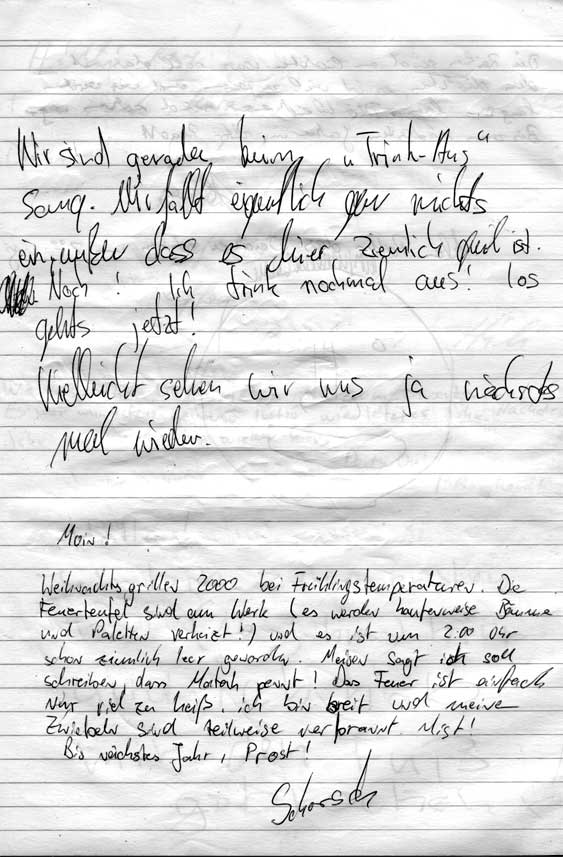 Wir sind gerade beim "Trink-Aus"
Song. Mir fällt eigentlich gar nichts
ein, außer dass es hier ziemlich geil ist.
Noch! Ich trink nochmal aus! los
gehts jetzt!
Vielleicht sehen wir uns ja nächstes
mal wieder.
Moin!
Weihnachtsgrillen 2000 bei Frühlingstemperaturen. De
Feuerteufel sind am Werk (es werden haufenweise Bäume
und Paletten verheizt!) und es ist um 2.00 Uhr
schon ziemlich leer geworden. Meiser sagt ich soll
schreiben, dass pennt! Das Feuer ist einfach
nur viel zu heiß, ich bin breit und meine
Zwiebeln sind teilweise verbrannt. Mist!
Bis nächstes Jahr, Prost!
Schorsch